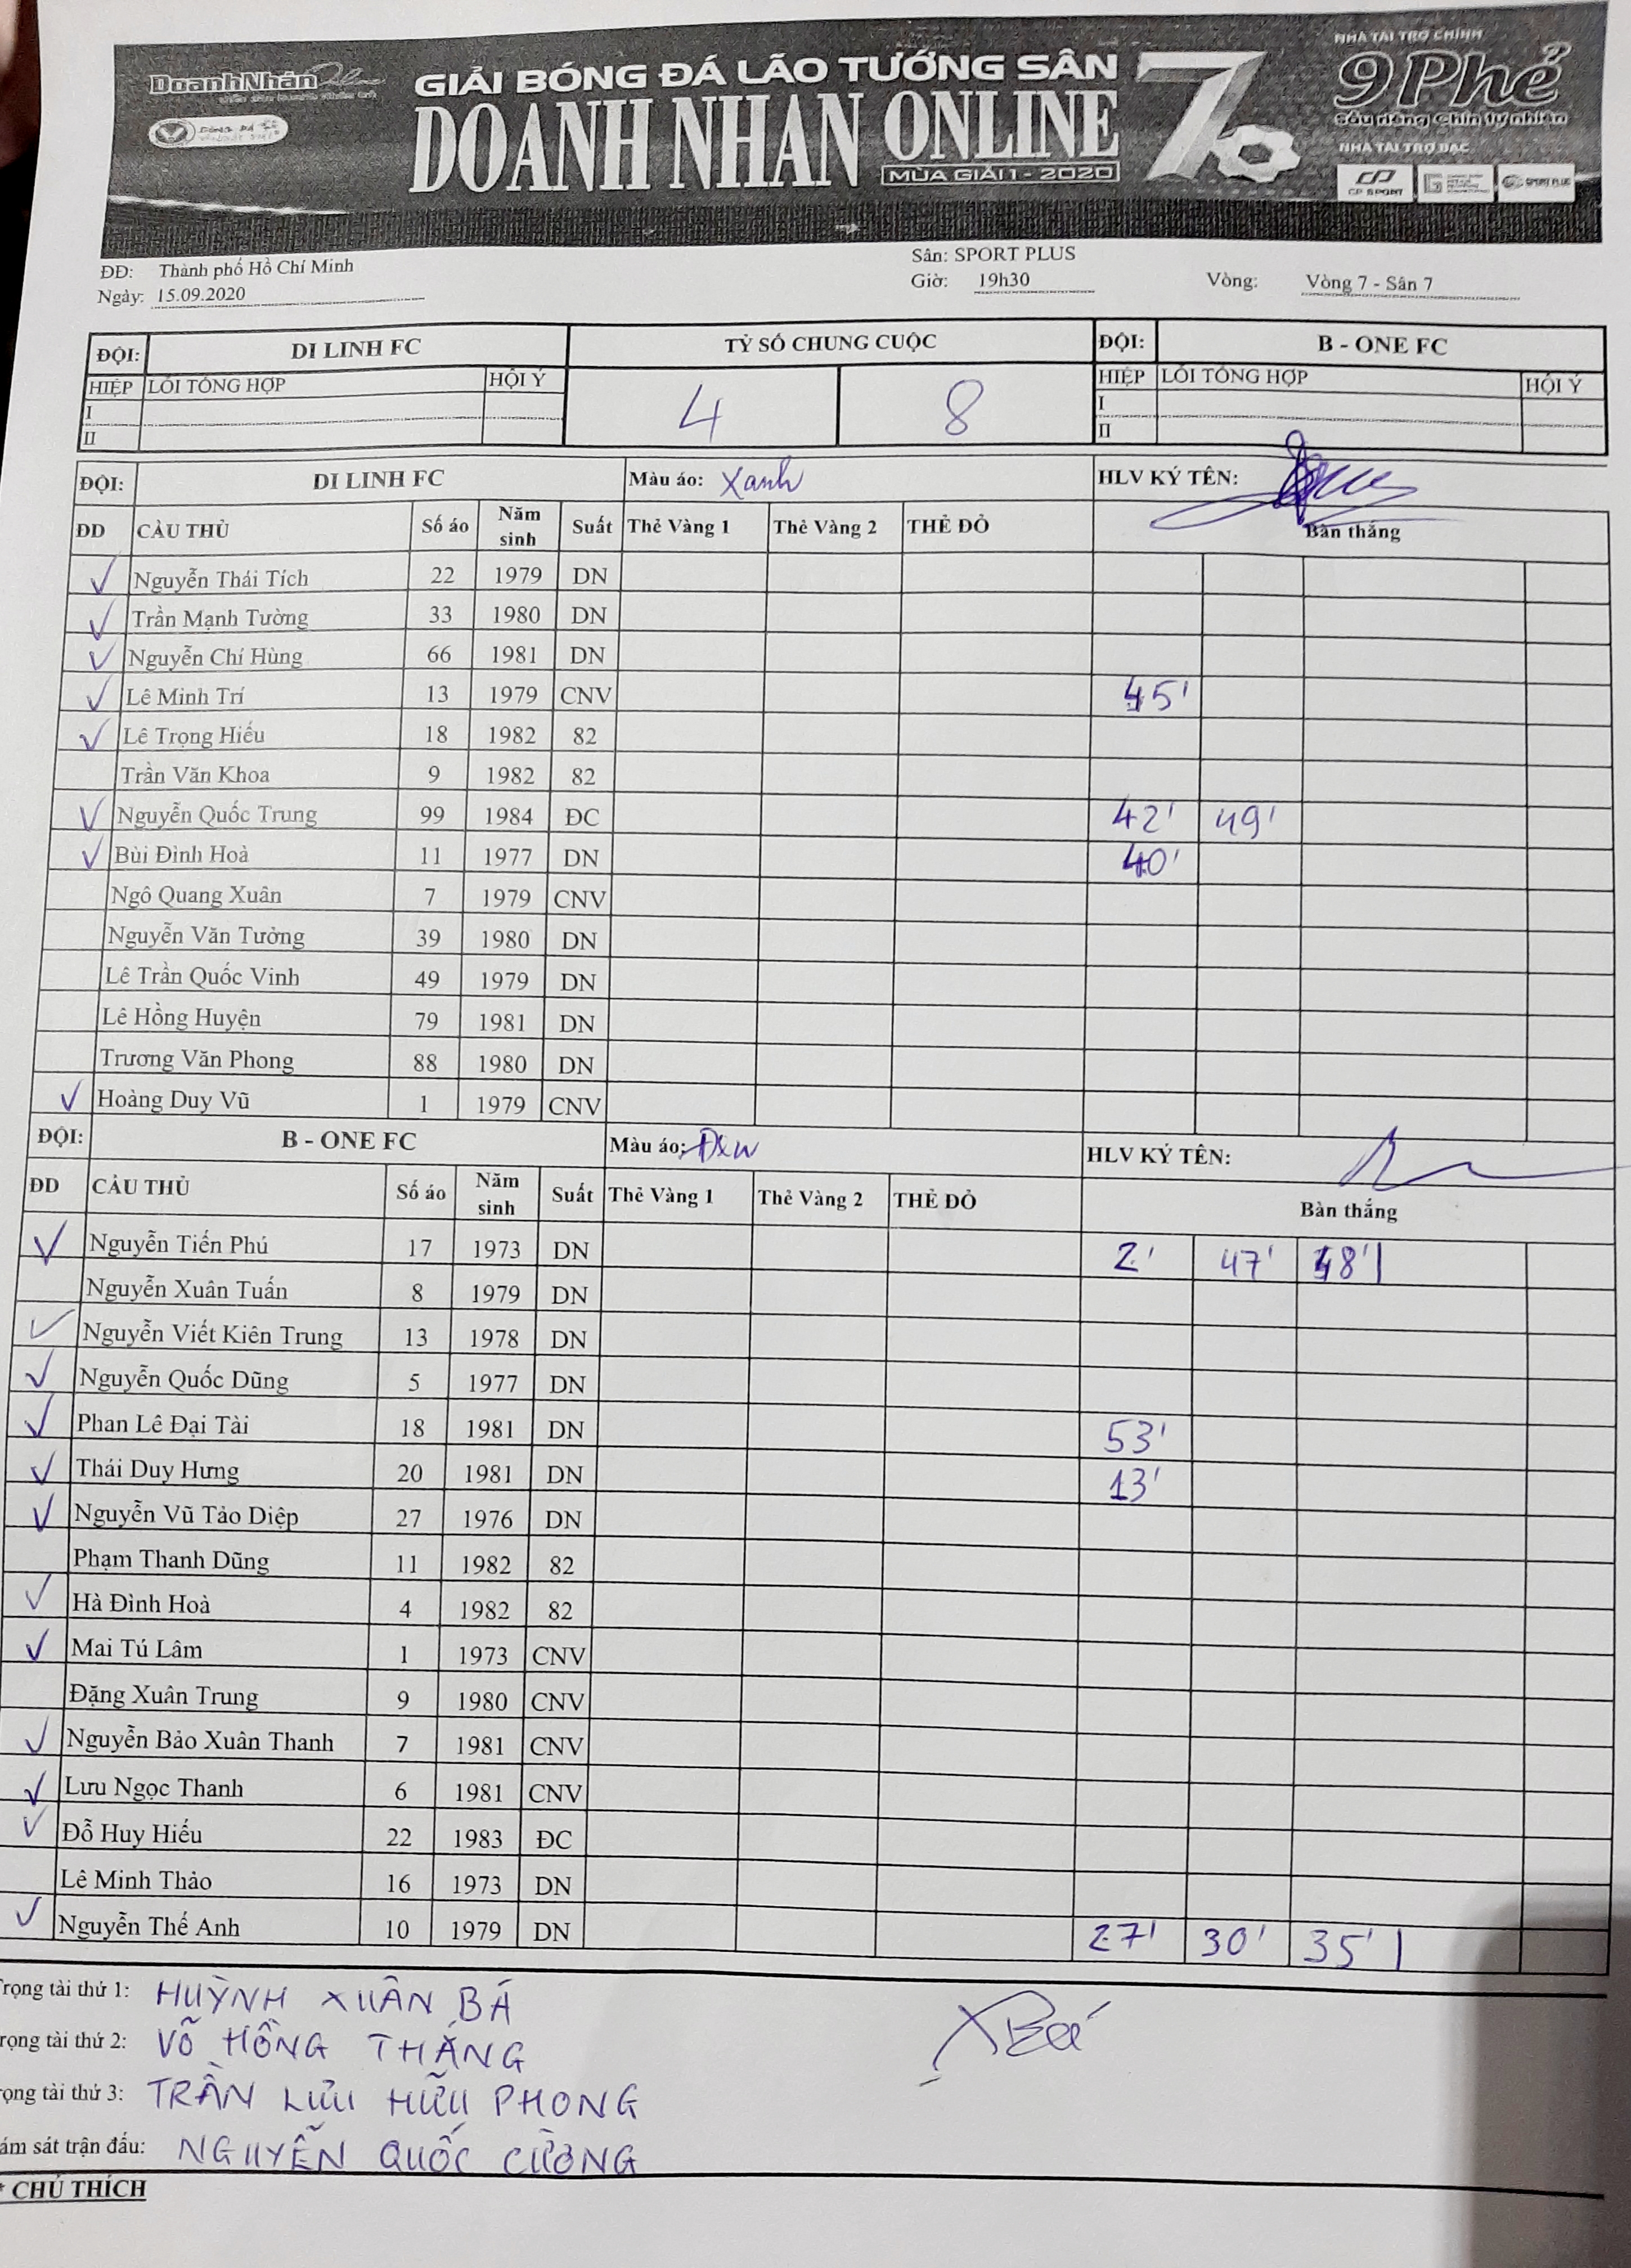 DoanhNhân Online
GIẢI BÓNG ĐÁ LÃO TƯỚNG SÂN 7
DOANH NHÂN ONLINE
MÙA GIẢI 1 - 2020
NHÀ TÀI TRỢ CHÍNH
9 Phẻ
Sầu riêng Chín tự nhiên
NHÀ TÀI TRỢ BẠC
CP SPORT
SPORT PLUS
ĐĐ: Thành phố Hồ Chí Minh Sân: SPORT PLUS
Ngày: 15.09.2020 Giờ: 19h30 Vòng: Vòng 7 - Sân 7
ĐỘI: DI LINH FC TỶ SỐ CHUNG CUỘC ĐỘI: B - ONE FC
HIỆP LỖI TỔNG HỢP HỘI Ý 4 8 HIỆP LỖI TỔNG HỢP HỘI Ý
I I
II II
ĐỘI: DI LINH FC Màu áo: Xanh HLV KÝ TÊN:
ĐD CẦU THỦ Số áo Năm sinh Suất Thẻ Vàng 1 Thẻ Vàng 2 THẺ ĐỎ Bàn thắng
Nguyễn Thái Tích 22 1979 DN
Trần Mạnh Tường 33 1980 DN
Nguyễn Chí Hùng 66 1981 DN
Lê Minh Trí 13 1979 CNV 45'
Lê Trọng Hiếu 18 1982 82
Trần Văn Khoa 9 1982 82
Nguyễn Quốc Trung 99 1984 ĐC 42' 49'
Bùi Đình Hoà 11 1977 DN 40'
Ngô Quang Xuân 7 1979 CNV
Nguyễn Văn Tưởng 39 1980 DN
Lê Trần Quốc Vinh 49 1979 DN
Lê Hồng Huyện 79 1981 DN
Trương Văn Phong 88 1980 DN
Hoàng Duy Vũ 1 1979 CNV
ĐỘI: B - ONE FC Màu áo: Đen HLV KÝ TÊN:
ĐD CẦU THỦ Số áo Năm sinh Suất Thẻ Vàng 1 Thẻ Vàng 2 THẺ ĐỎ Bàn thắng
Nguyễn Tiến Phú 17 1973 DN 2' 47' 48'
Nguyễn Xuân Tuấn 8 1979 DN
Nguyễn Viết Kiên Trung 13 1978 DN
Nguyễn Quốc Dũng 5 1977 DN
Phan Lê Đại Tài 18 1981 DN 53'
Thái Duy Hưng 20 1981 DN 13'
Nguyễn Vũ Tảo Diệp 27 1976 DN
Phạm Thanh Dũng 11 1982 82
Hà Đình Hoà 4 1982 82
Mai Tú Lâm 1 1973 CNV
Đặng Xuân Trung 9 1980 CNV
Nguyễn Bảo Xuân Thanh 7 1981 CNV
Lưu Ngọc Thanh 6 1981 CNV
Đỗ Huy Hiếu 22 1983 ĐC
Lê Minh Thảo 16 1973 DN
Nguyễn Thế Anh 10 1979 DN 27' 30' 35'
rọng tài thứ 1: HUỲNH XUÂN BÁ
rọng tài thứ 2: VÕ HỒNG THẮNG
ọng tài thứ 3: TRẦN LƯU HỮU PHONG
ám sát trận đấu: NGUYỄN QUỐC CƯỜNG
* CHÚ THÍCH